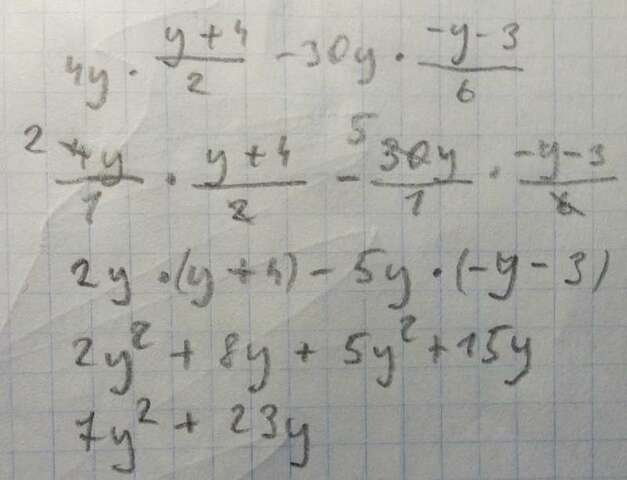 4y · (y+4)/2 - 30y · (-y-3)/6
2 4y/1 · (y+4)/2 - 5 30y/1 · (-y-3)/6
2y · (y+4) - 5y · (-y-3)
2y² + 8y + 5y² + 15y
7y² + 23y